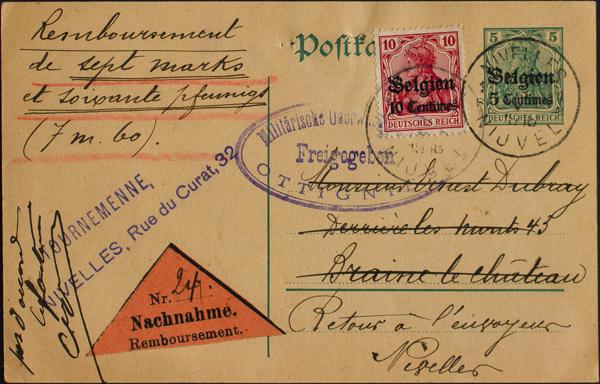 Remboursement
de sept marks
et soixante pfennigs
(7 m. 60).
Postka
5 5
Belgien
5 Centimes
DEUTSCHES REICH
10 10
Belgien
10 Centimes
DEUTSCHES REICH
NIVELLES
NIJVEL
Militärische
Freigegeben
OTTIGN
TOURNEMENNE,
NIVELLES, Rue du Curat, 32
Monsieur Ernest Dubray
Derrière les monts 45
Braine le château
Retour à l'envoyeur
Nivelles
Nr. 24.
Nachnahme.
Remboursement.